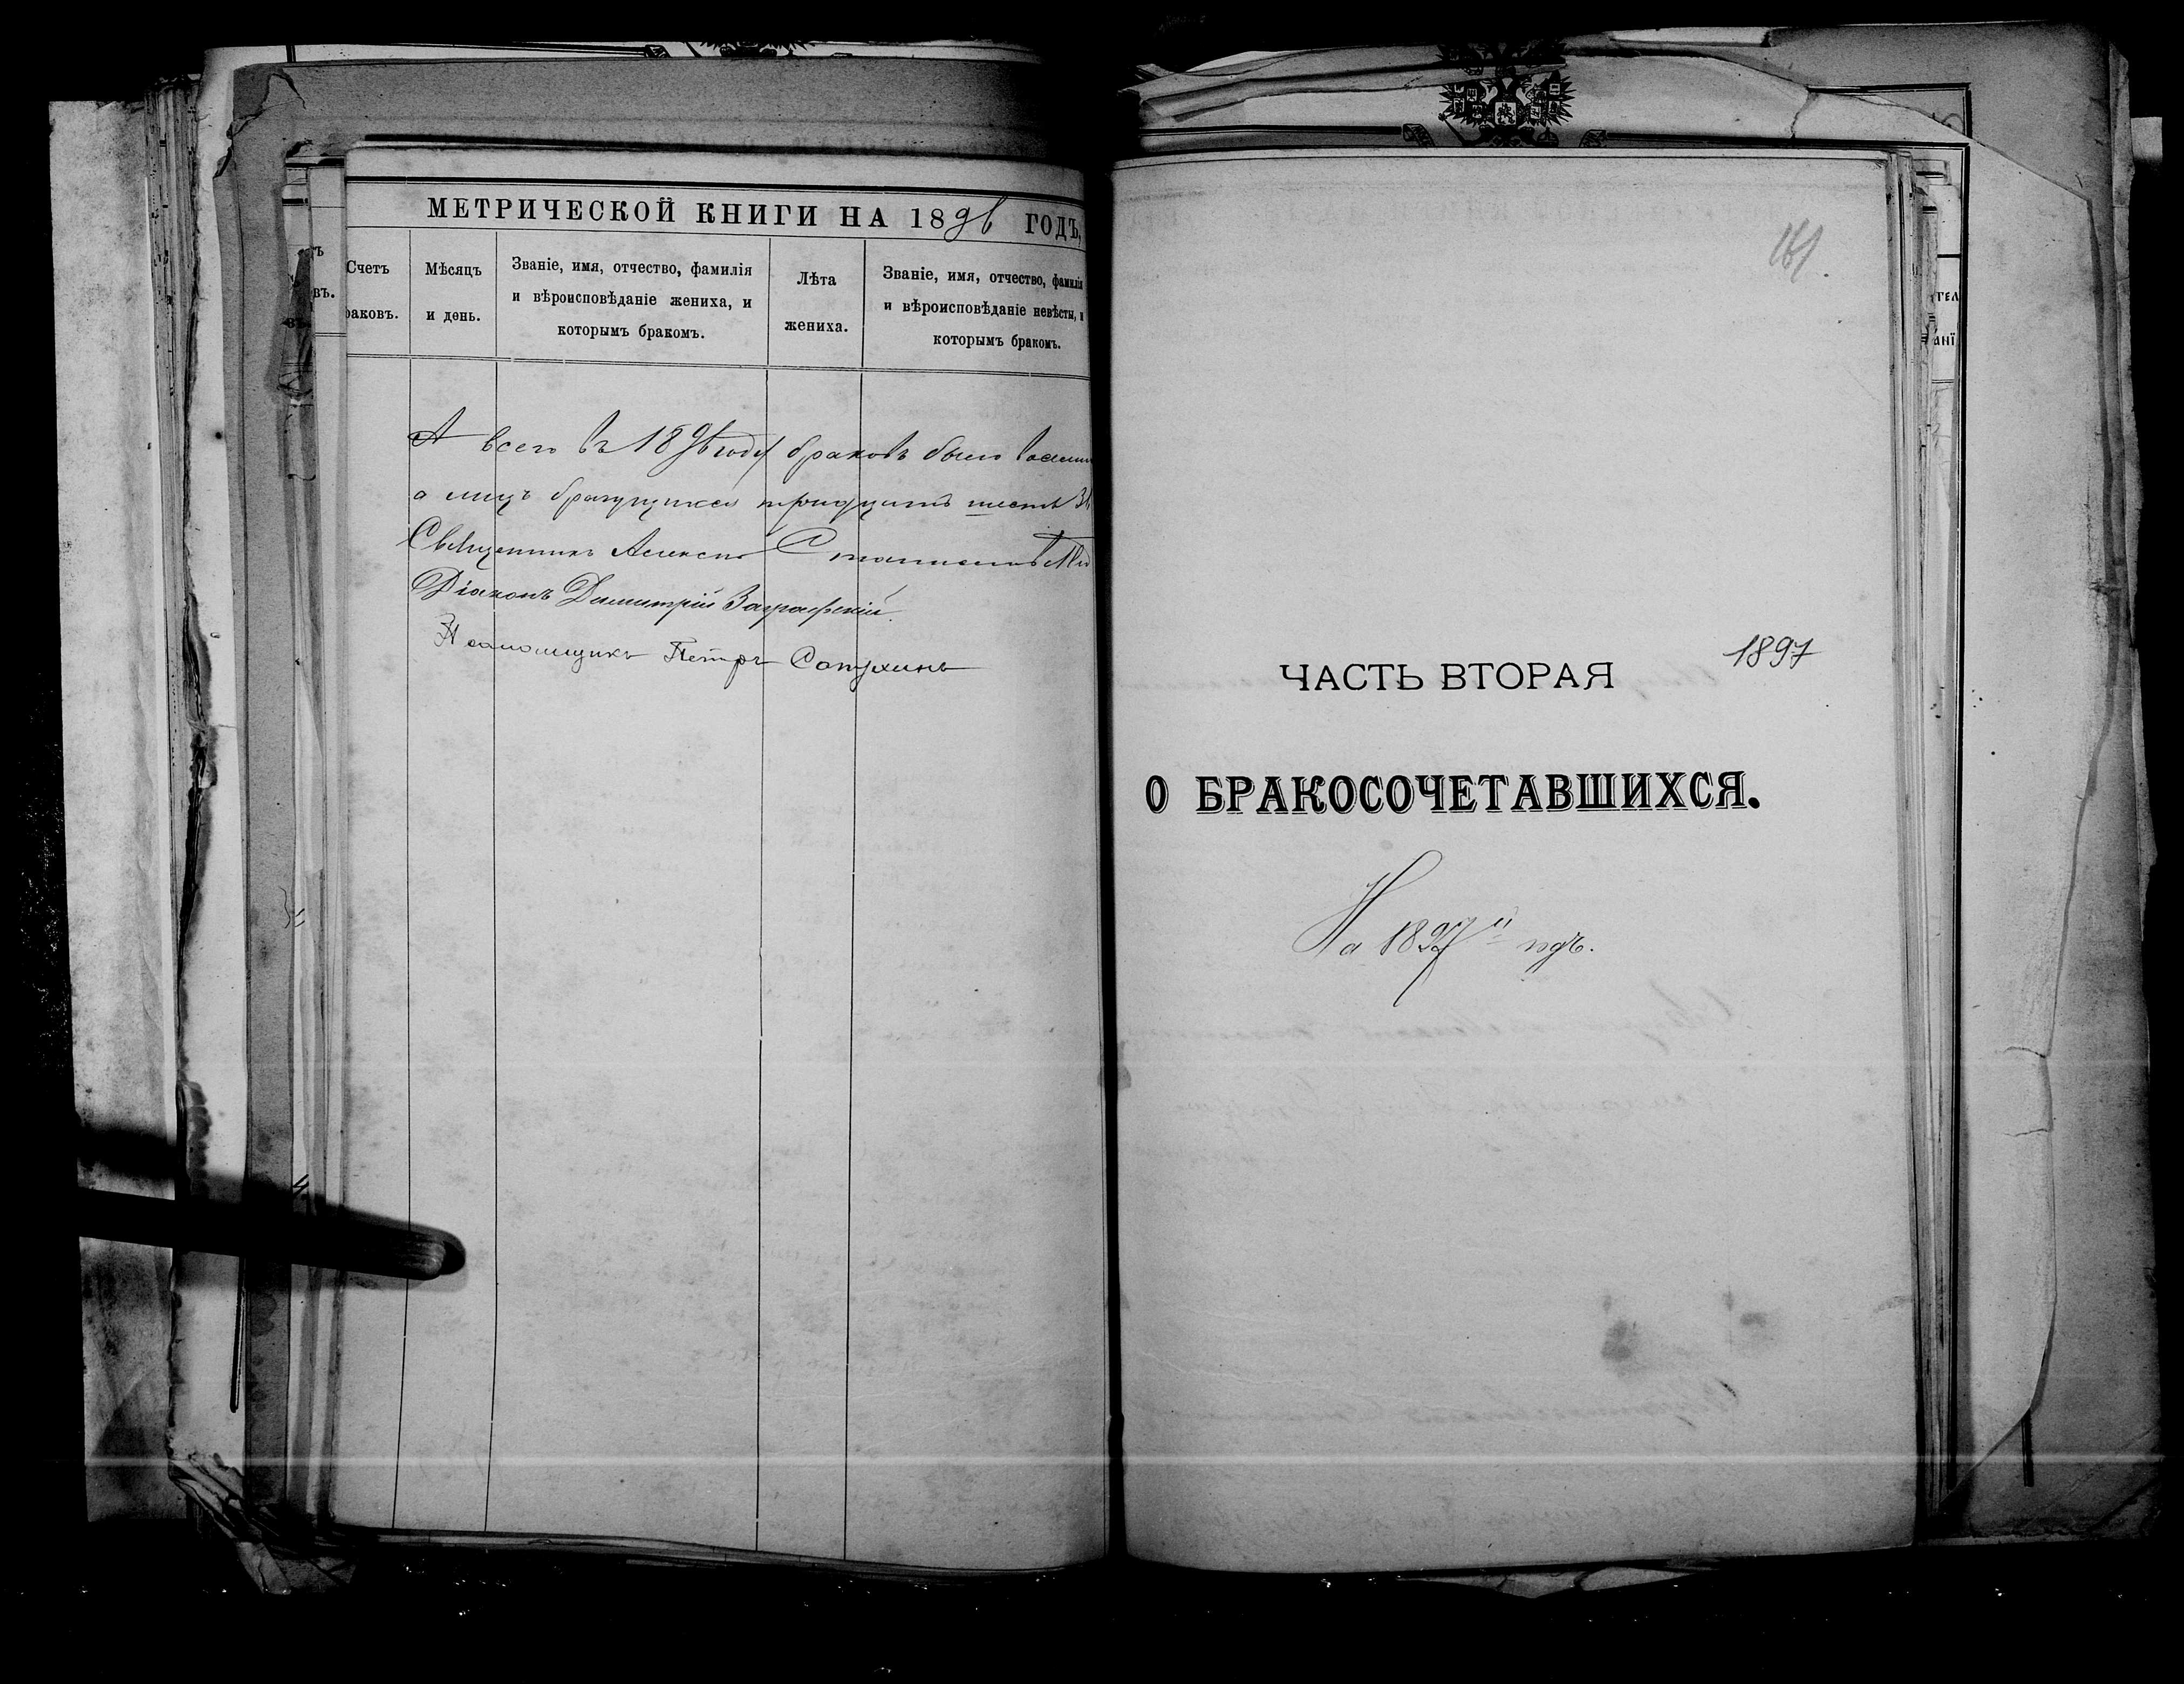 МЕТРИЧЕСКОЙ КНИГИ НА 1896 ГОДЪ,
Счетъ
раковъ.
Мѣсяцъ
и день.
Званіе, имя, отчество, фамилія
и вѣроисповѣданіе жениха, и
которымъ бракомъ.
Лѣта
жениха.
Званіе, имя, отчество, фамилія
и вѣроисповѣданіе невѣсты, и
которымъ бракомъ.
А всего въ 1896 году браковъ было
а лицъ тридцать шесть
Священникъ Алексѣй
Діаконъ Димитрій
Псаломщикъ Петръ
161.
1897
ЧАСТЬ ВТОРАЯ
О БРАКОСОЧЕТАВШИХСЯ.
На 1897й годъ.